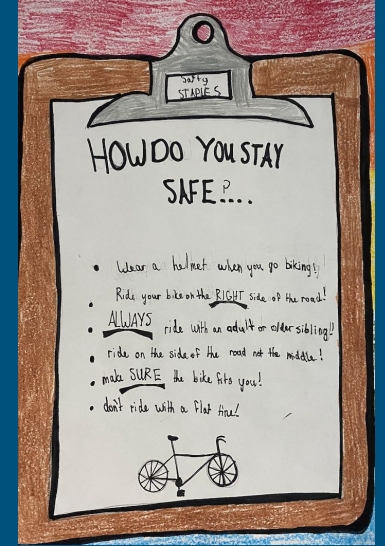 Safty
STAPLES
HOW DO YOU STAY
SAFE?....
• Wear a helmet when you go biking!
• Ride your bike on the RIGHT side of the road!
• ALWAYS ride with an adult or older sibling!!
• ride on the side of the road not the middle!
• make SURE the bike fits you!
• don't ride with a flat tire!